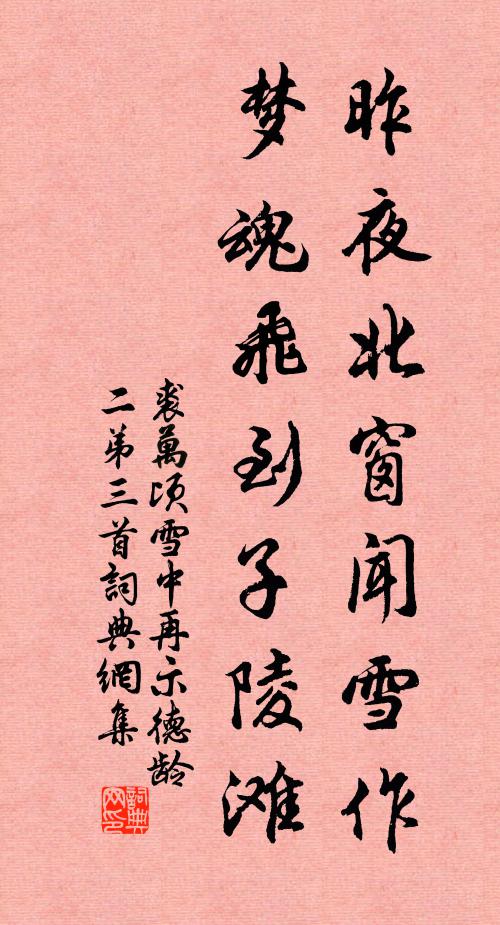 昨夜北窗闻雪作
梦魂飞到子陵滩
裘萬顷雪中再示德龄
二第三首詞典網集
詞典
网印